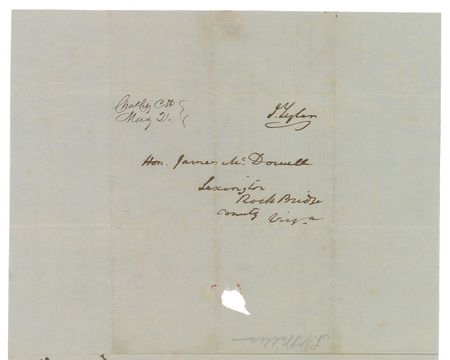 J. Tyler
Chas City C H
May 21.
Hon. James McDowell
Lexington
Rock Bridge
County Virga